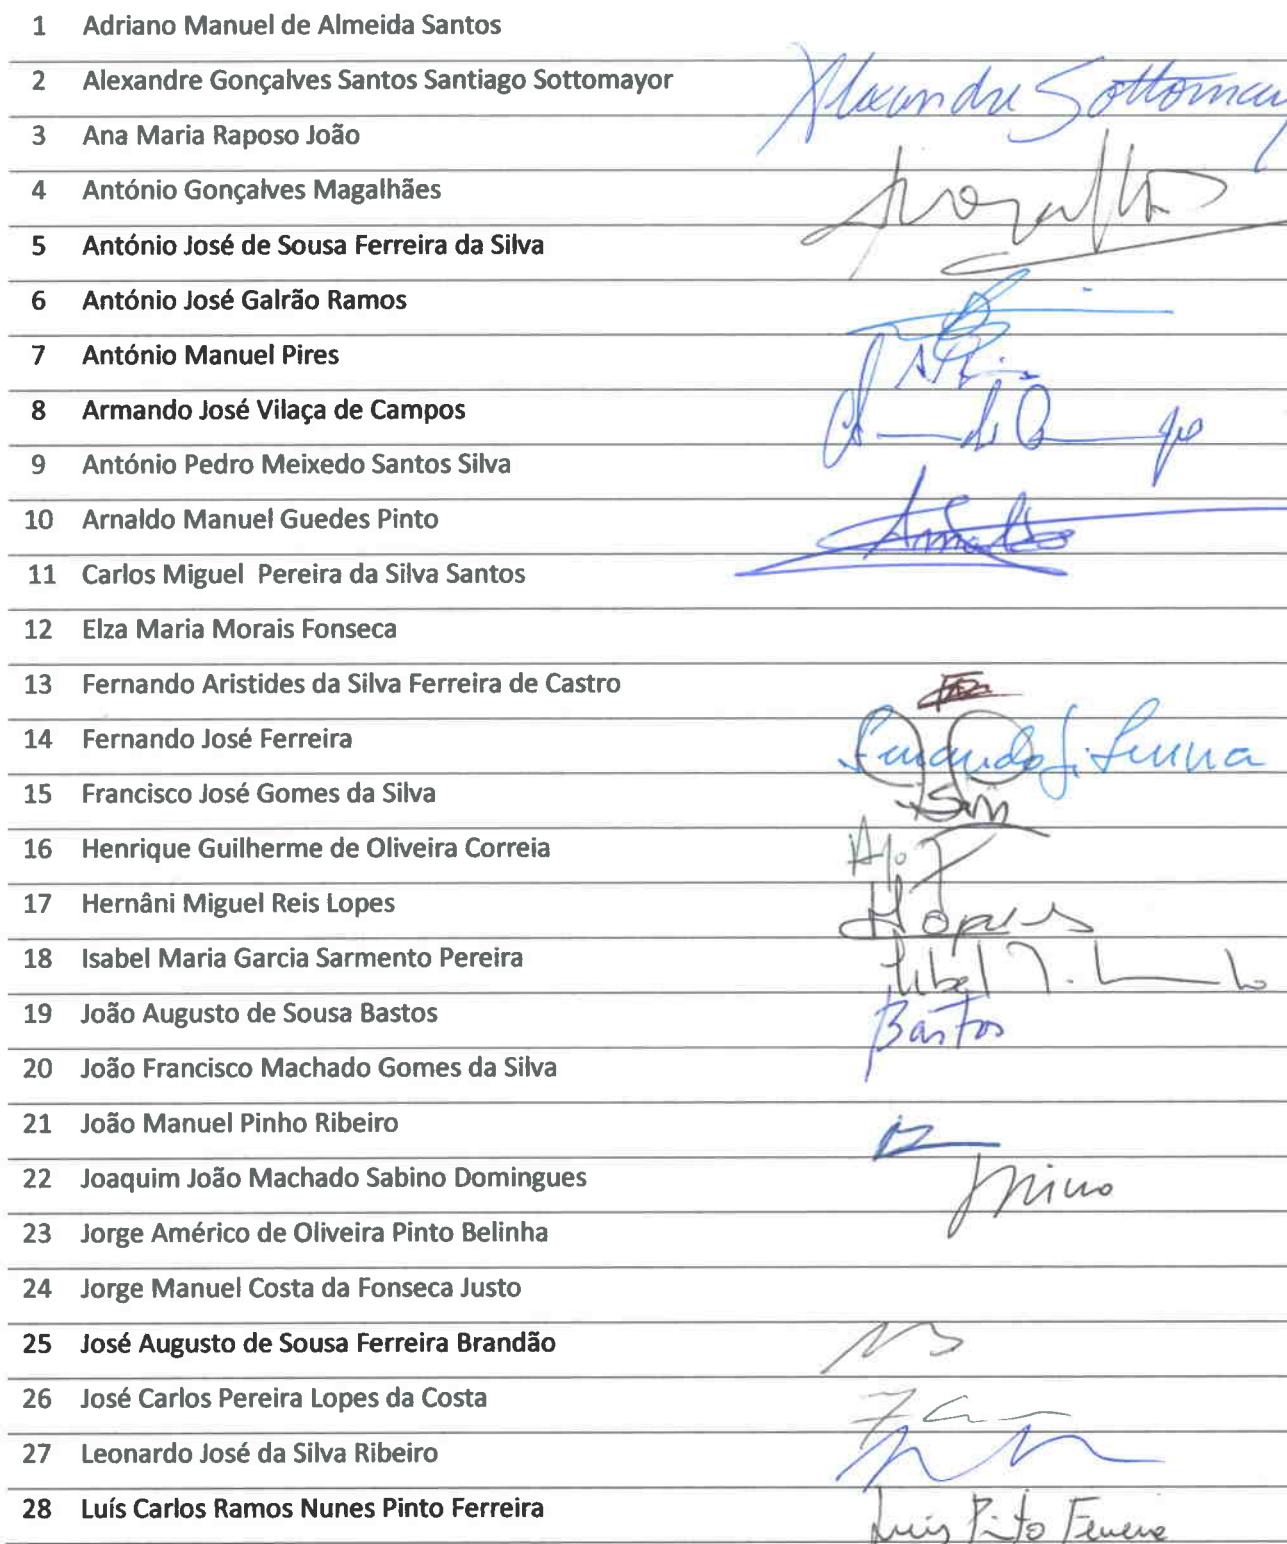 1 Adriano Manuel de Almeida Santos
2 Alexandre Gonçalves Santos Santiago Sottomayor Alexandre Sottomay
3 Ana Maria Raposo João
4 António Gonçalves Magalhães
5 António José de Sousa Ferreira da Silva
6 António José Galrão Ramos
7 António Manuel Pires
8 Armando José Vilaça de Campos
9 António Pedro Meixedo Santos Silva
10 Arnaldo Manuel Guedes Pinto
11 Carlos Miguel Pereira da Silva Santos
12 Elza Maria Morais Fonseca
13 Fernando Aristides da Silva Ferreira de Castro
14 Fernando José Ferreira
15 Francisco José Gomes da Silva
16 Henrique Guilherme de Oliveira Correia
17 Hernâni Miguel Reis Lopes
18 Isabel Maria Garcia Sarmento Pereira
19 João Augusto de Sousa Bastos Bastos
20 João Francisco Machado Gomes da Silva
21 João Manuel Pinho Ribeiro
22 Joaquim João Machado Sabino Domingues
23 Jorge Américo de Oliveira Pinto Belinha
24 Jorge Manuel Costa da Fonseca Justo
25 José Augusto de Sousa Ferreira Brandão
26 José Carlos Pereira Lopes da Costa
27 Leonardo José da Silva Ribeiro
28 Luís Carlos Ramos Nunes Pinto Ferreira Luis Pinto Ferreira